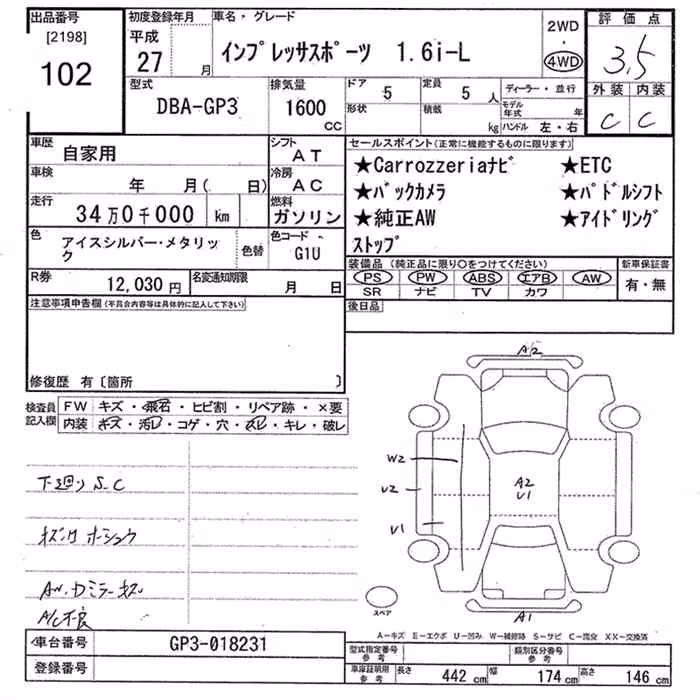 出品番号
[2198]
102
初度登録年月
平成
27 月
車名・グレード
インプレッサスポーツ 1.6i-L
2WD
・
4WD
評価点
3.5
外装 内装
C C
型式
DBA-GP3
排気量
1600
CC
ドア 5
定員 5 人
形状
積載 kg
ディーラー・並行
モデル年式 年
ハンドル 左・右
車歴
自家用
シフト
AT
車検
年 月( 日)
冷房
AC
走行
34万0千000 km
燃料
ガソリン
色
アイスシルバー・メタリック
色替
色コード
G1U
R券
12,030円
名変通知期限
月 日
セールスポイント(正常に機能するものに限ります)
★Carrozzeriaナビ ★ETC
★バックカメラ ★パドルシフト
★純正AW ★アイドリング
ストップ
装備品 (純正品に限り○をつけてください)
PS PW ABS エアB AW
SR ナビ TV カワ
新車保証書
有・無
後日品
注意事項申告欄(不具合内容等は具体的に記入して下さい)
修復歴 有〔箇所 〕
検査員
記入欄
FW キズ・飛石・ヒビ割・リペア跡・×要
内装 キズ・汚レ・コゲ・穴・スレ・キレ・破レ
下廻り S.C
AW.
A/C不良
A2
W2
U2
U1
A2
U1
A1
スペア
A-キズ E-エクボ U-凹み W-補修跡 S-サビ C-腐食 X-要交換 XX-交換済
車台番号 GP3-018231
登録番号
型式指定番号
参考
類別区分番号
参考
車庫証明用
参考
長さ 442 cm 幅 174 cm 高さ 146 cm